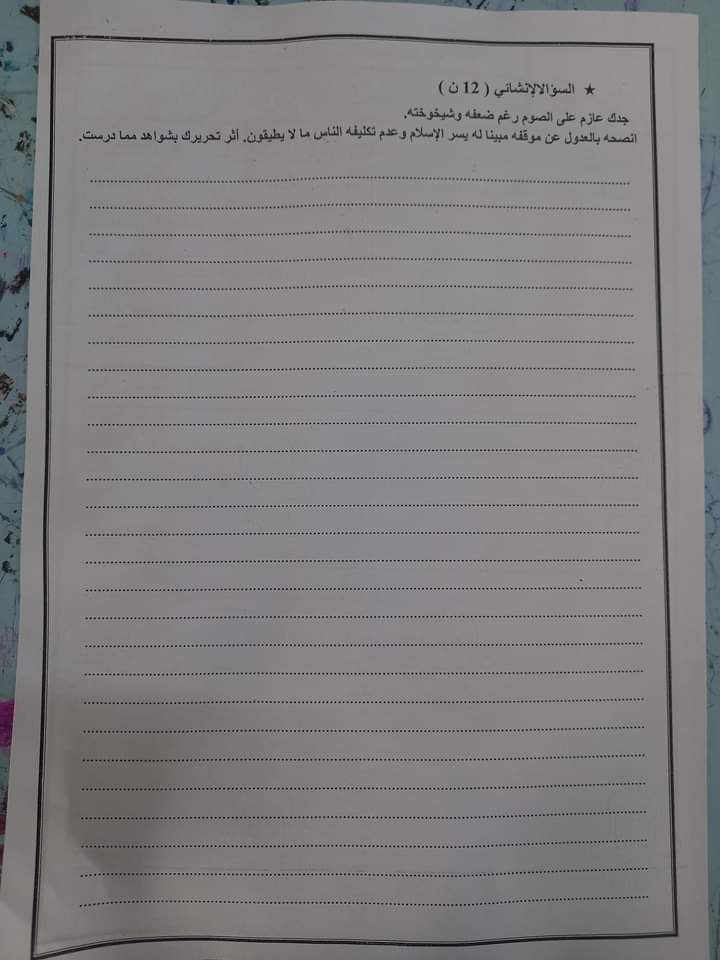 ★ السؤالالإنشائي ( 12 ن )
جدك عازم على الصوم رغم ضعفه وشيخوخته.
انصحه بالعدول عن موقفه مبينا له يسر الإسلام وعدم تكليفه الناس ما لا يطيقون. أثر تحريرك بشواهد مما درست.